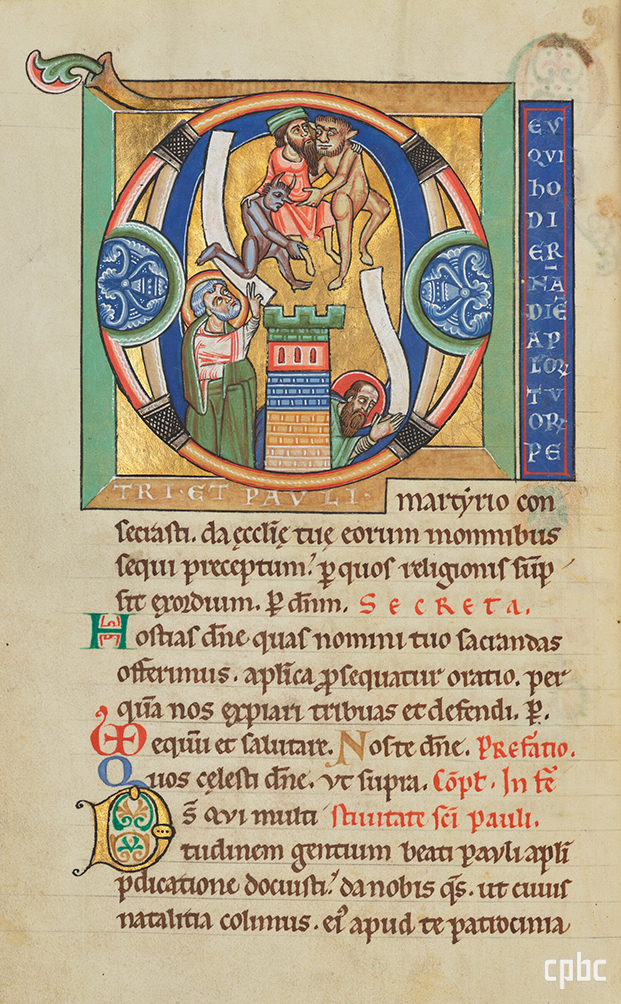 D
EV
QVI
hO
DI
ER
NA
DIĒ
AP
LOꝜ
TV
OR
PE
TRI · ET PAVLI · martyrio con
secrasti. da ęcclię tuę eorum in omnibus
sequi preceptum. ꝑ quos religionis sūp
sit exordium. P̄ dn̄m. SECRETA.
Hostias dn̄e quas nomini tuo sacrandas
offerimus. aplīca ꝓsequatur oratio. per
quā nos expiari tribuas et defendi. P̄.
equū et salutare. Noste dn̄e. Prefatio.
Quos cęlesti dn̄e. vt supra. Cōpl̄. In fe
D s̄ qui multi stiuitate sc̄i pauli.
tudinem gentium beati pauli apl̄i
p̄dicatione docuisti. da nobis q̄s. ut cuius
natalitia colimus. eiꝰ apud te patrocinia
cpbc